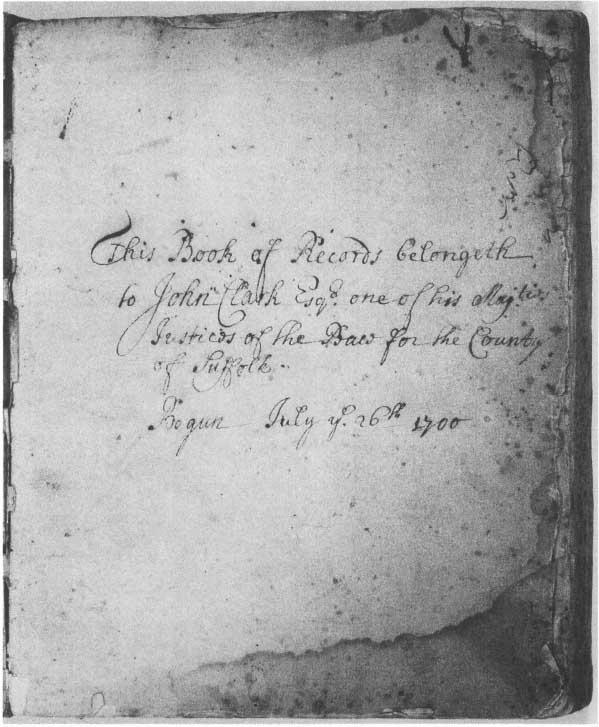 This Book of Records belongeth
to John Clark Esqr. one of his Majties
Justices of the Peace for the County
of Suffolk.
Begun July ye. 26th 1700